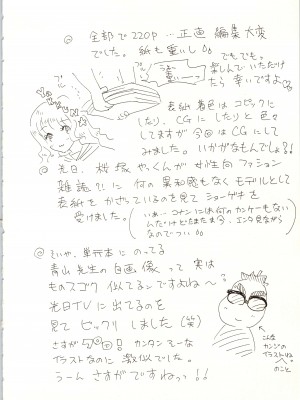 ◎ 全部で220P…正直 編集大変
でした。紙も重いし
でもでも。
楽しんでいただけ
たら 幸いですよ♡
重い…
表紙着色はコピックに
したり、CGにしたりと色々
してますが今回はCGにして
みました。いかがなもんでしょ?!
◎ 先日、桜塚やっくんが女性向ファッション
雑誌?!に何の異和感もなくモデルとして
表紙をかざっているのを見てショーゲキを
受けました。
(いぁー コナンには何のカンケーもない
んだけどたまたま今、エンタ見ながら
なのでつい)
◎ そいや、単行本にのってる
青山先生の自画像って実は
ものスゴク似てるンですよね〜
先日TVに出てるのを
見てビックリしました(笑)
さすがプロ! カンタンそーな
イラストなのに激似でした。
うーんさすがですねっ!!
こんな
カンジの
イラストね
のこと